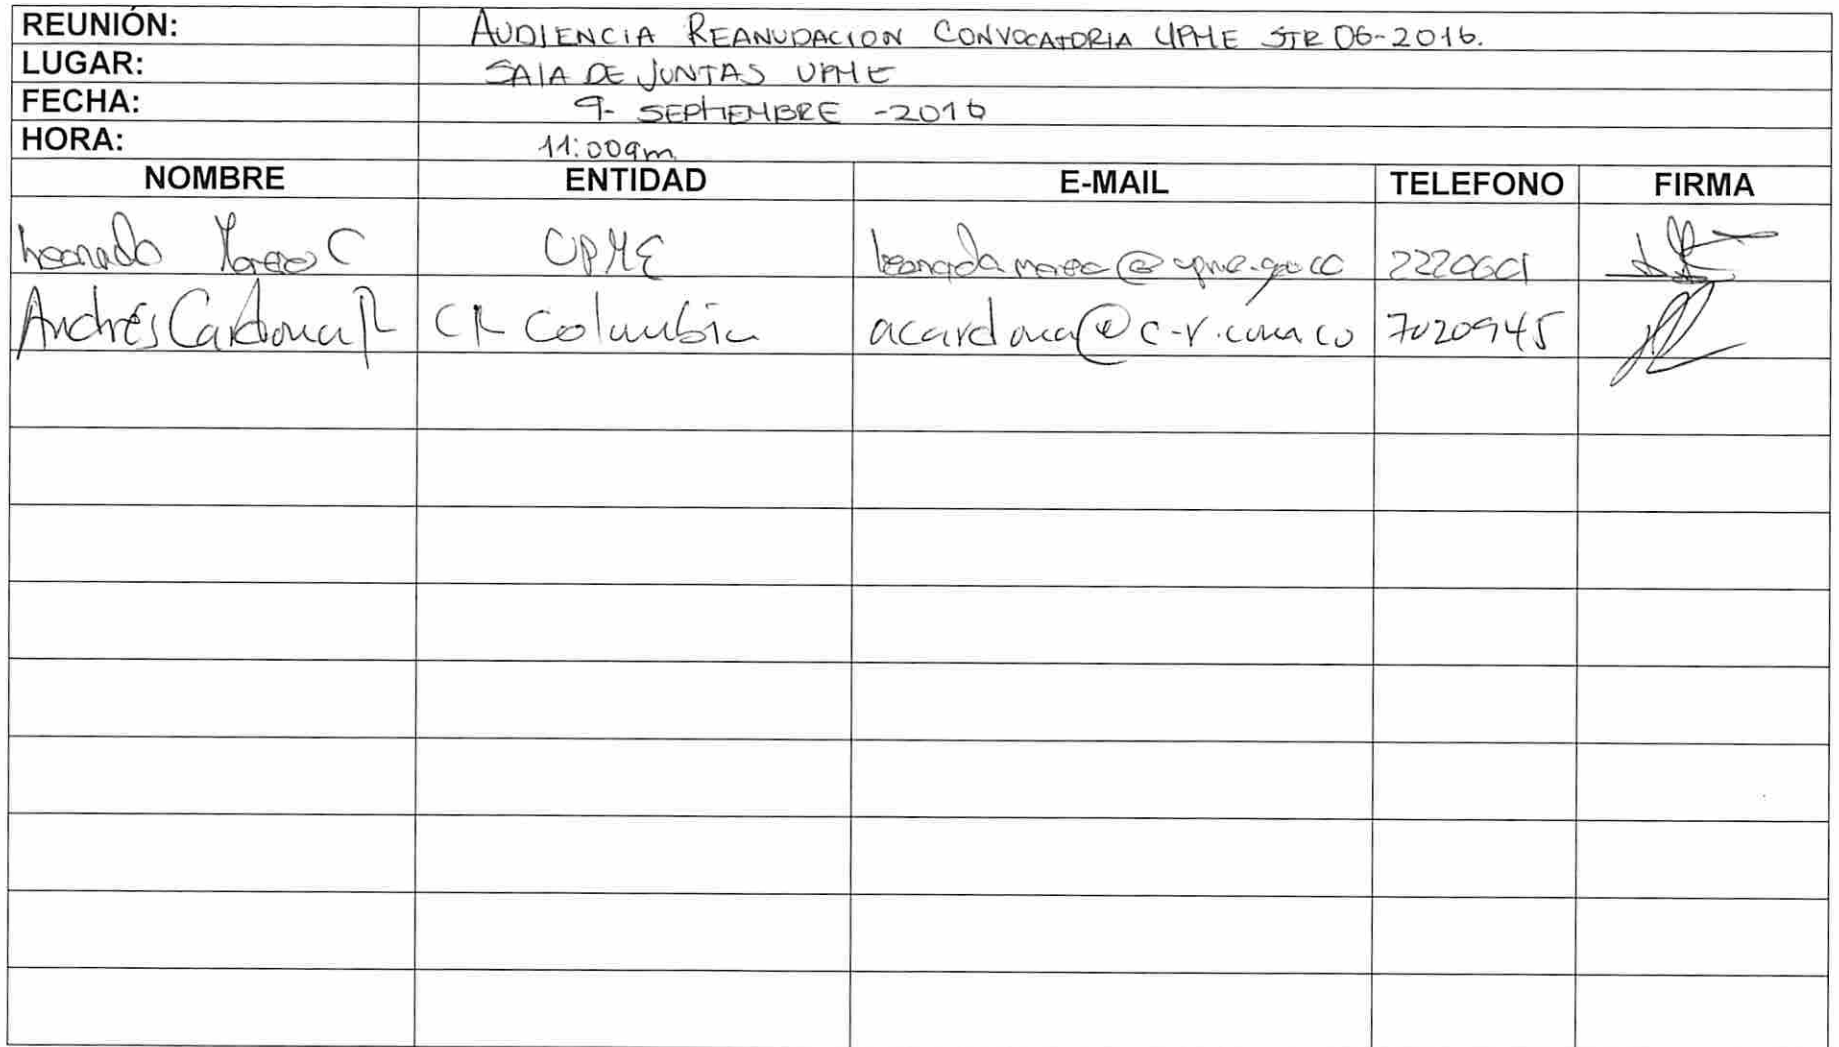 REUNIÓN: AUDIENCIA REANUDACION CONVOCATORIA UPME STR 06-2016.
LUGAR: SALA DE JUNTAS UPME
FECHA: 9- SEPTIEMBRE -2016
HORA: 11:00am
NOMBRE ENTIDAD E-MAIL TELEFONO FIRMA
Leonardo C UPME
Andrés Cardona R CR Colombia acardona@c-r.com.co 7020945